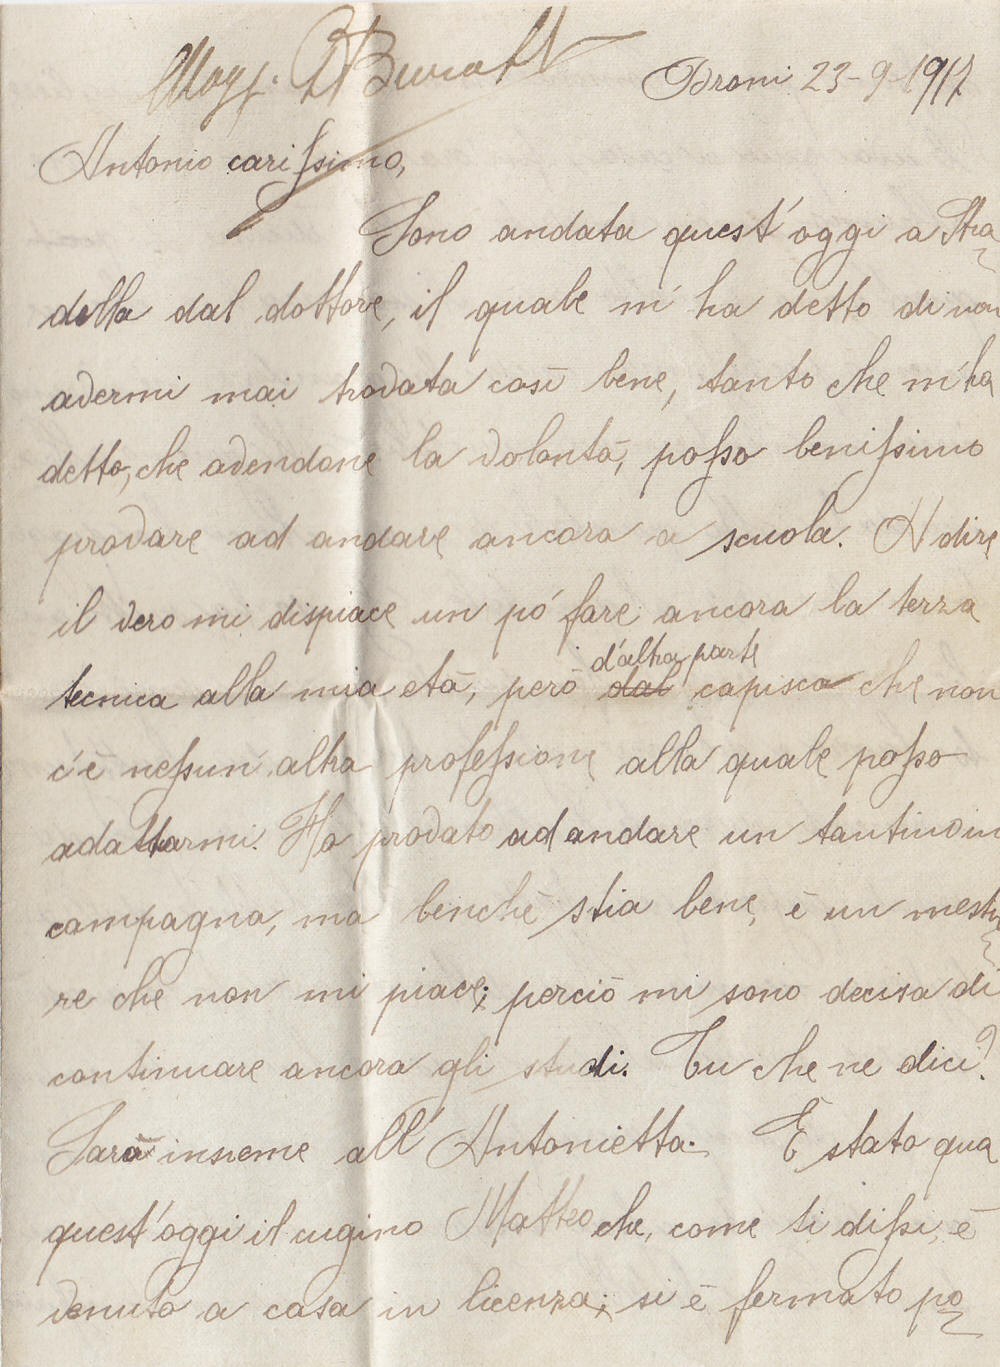 Magg.
Broni 23-9-1917
Antonio carissimo,
Sono andata quest'oggi a Stra
della dal dottore, il quale m'ha detto di non
avermi mai trovata così bene, tanto che m'ha
detto, che avendone la volontà, posso benissimo
provare ad andare ancora a scuola. A dire
il vero mi dispiace un pó fare ancora la terza
d'altra parte
tecnica alla mia età, però dal capisco che non
c'è nessun'altra professione alla quale posso
adattarmi. Ho provato ad andare un tantino in
campagna, ma benchè stia bene, è un mestie
re che non mi piace; perciò mi sono decisa di
continuare ancora gli studi. Tu che ne dici?
Sarò insieme all'Antonietta. È stato qua
quest'oggi il cugino Matteo che, come ti dissi, è
venuto a casa in licenza; si è fermato po